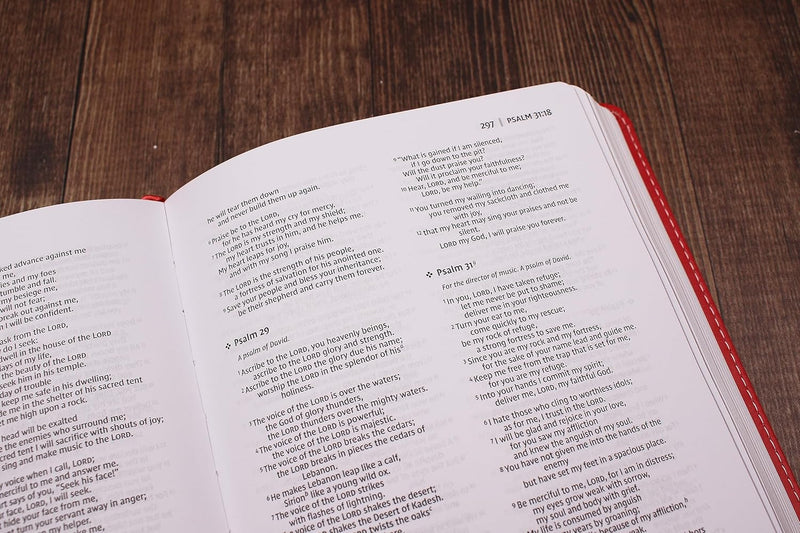 ked advance against me
me,
ies and my foes
tumble and fall.
my besiege me,
will not fear;
break out against me,
n I will be confident.
ask from the LORD,
do I seek:
dwell in the house of the LORD
ays of my life,
the beauty of the LORD
seek him in his temple.
day of trouble
keep me safe in his dwelling;
de me in the shelter of his sacred tent
et me high upon a rock.
head will be exalted
e the enemies who surround me;
cred tent I will sacrifice with shouts of joy;
sing and make music to the LORD.
y voice when I call, LORD;
merciful to me and answer me.
art says of you, "Seek his face!"
face, LORD, I will seek.
t hide your face from me,
t turn your servant away in anger;
my helper.
297 | PSALM 31:18
he will tear them down
and never build them up again.
6 Praise be to the LORD,
for he has heard my cry for mercy.
7 The LORD is my strength and my shield;
my heart trusts in him, and he helps me.
My heart leaps for joy,
and with my song I praise him.
8 The LORD is the strength of his people,
a fortress of salvation for his anointed one.
9 Save your people and bless your inheritance;
be their shepherd and carry them forever.
Psalm 29
A psalm of David.
1 Ascribe to the LORD, you heavenly beings,
ascribe to the LORD glory and strength.
2 Ascribe to the LORD the glory due his name;
worship the LORD in the splendor of his a
holiness.
3 The voice of the LORD is over the waters;
the God of glory thunders,
the LORD thunders over the mighty waters.
4 The voice of the LORD is powerful;
the voice of the LORD is majestic.
5 The voice of the LORD breaks the cedars;
the LORD breaks in pieces the cedars of
Lebanon.
6 He makes Lebanon leap like a calf,
Sirion b like a young wild ox.
7 The voice of the LORD strikes
with flashes of lightning.
8 The voice of the LORD shakes the desert;
the LORD shakes the Desert of Kadesh.
voice of the LORD twists the oaks c
9 "What is gained if I am silenced,
if I go down to the pit?
Will the dust praise you?
Will it proclaim your faithfulness?
10 Hear, LORD, and be merciful to me;
LORD, be my help."
11 You turned my wailing into dancing;
you removed my sackcloth and clothed me
with joy,
12 that my heart may sing your praises and not be
silent.
LORD my God, I will praise you forever.
Psalm 31 g
For the director of music. A psalm of David.
1 In you, LORD, I have taken refuge;
let me never be put to shame;
deliver me in your righteousness.
2 Turn your ear to me,
come quickly to my rescue;
be my rock of refuge,
a strong fortress to save me.
3 Since you are my rock and my fortress,
for the sake of your name lead and guide me.
4 Keep me free from the trap that is set for me,
for you are my refuge.
5 Into your hands I commit my spirit;
deliver me, LORD, my faithful God.
6 I hate those who cling to worthless idols;
as for me, I trust in the LORD.
7 I will be glad and rejoice in your love,
for you saw my affliction
and knew the anguish of my soul.
8 You have not given me into the hands of the
enemy
but have set my feet in a spacious place.
9 Be merciful to me, LORD, for I am in distress;
my eyes grow weak with sorrow,
my soul and body with grief.
My life is consumed by anguish
my years by groaning;
because of my affliction, h